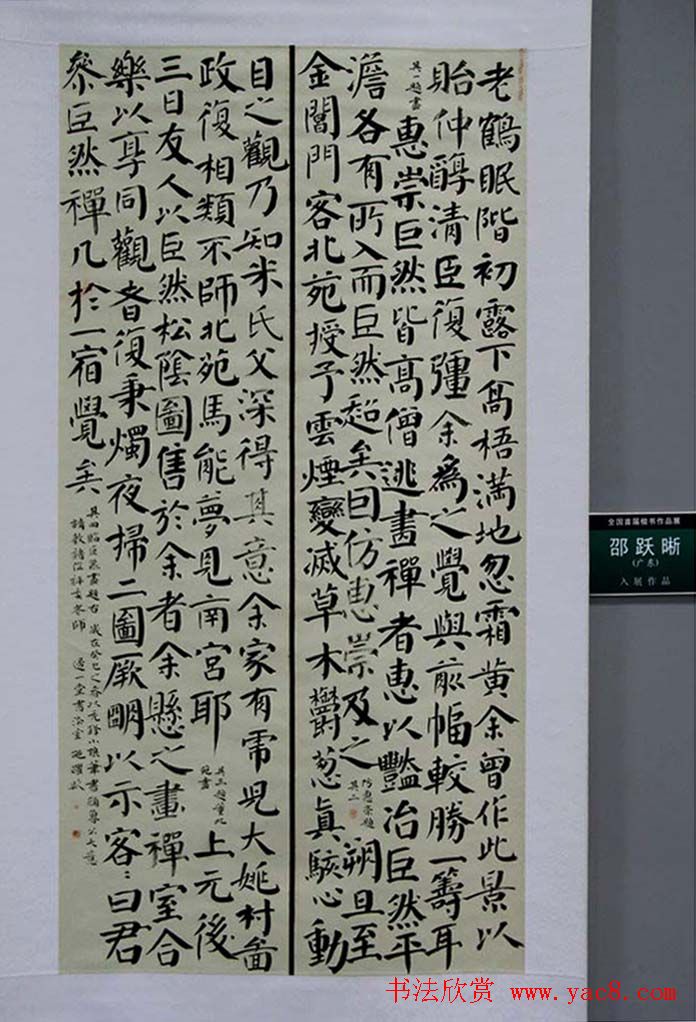 老鶴眠階初露下高梧滿地忽霜黃余曾作此景以
貽仲醇清臣復彊余爲之覺與前幅較勝一籌耳
其一題畫
惠崇巨然皆高僧逃畫禪者惠以豔冶巨然平
澹各有所入而巨然超矣因仿惠崇及之
仿惠崇題
其二
朔旦至
金閶門客北苑授予雲煙變滅草木鬱蔥真駭心動
目之觀乃知米氏父深得其意余家有虎兒大姚村圖
政復相類不師北苑焉能夢見南宮耶
其三題董北
苑畫
上元後
三日友人以巨然松陰圖售於余者余懸之畫禪室合
樂以享同觀者復秉燭夜掃二圖厥明以示客：曰君
參巨然禪几於一宿覺矣
其四臨巨然畫題右 歲在癸巳之春以筆書顏魯公大意
請教諸位評委老師
全国首届楷书作品展
邵跃晰
(广东)
入展作品
书法欣赏 www.yac8.com